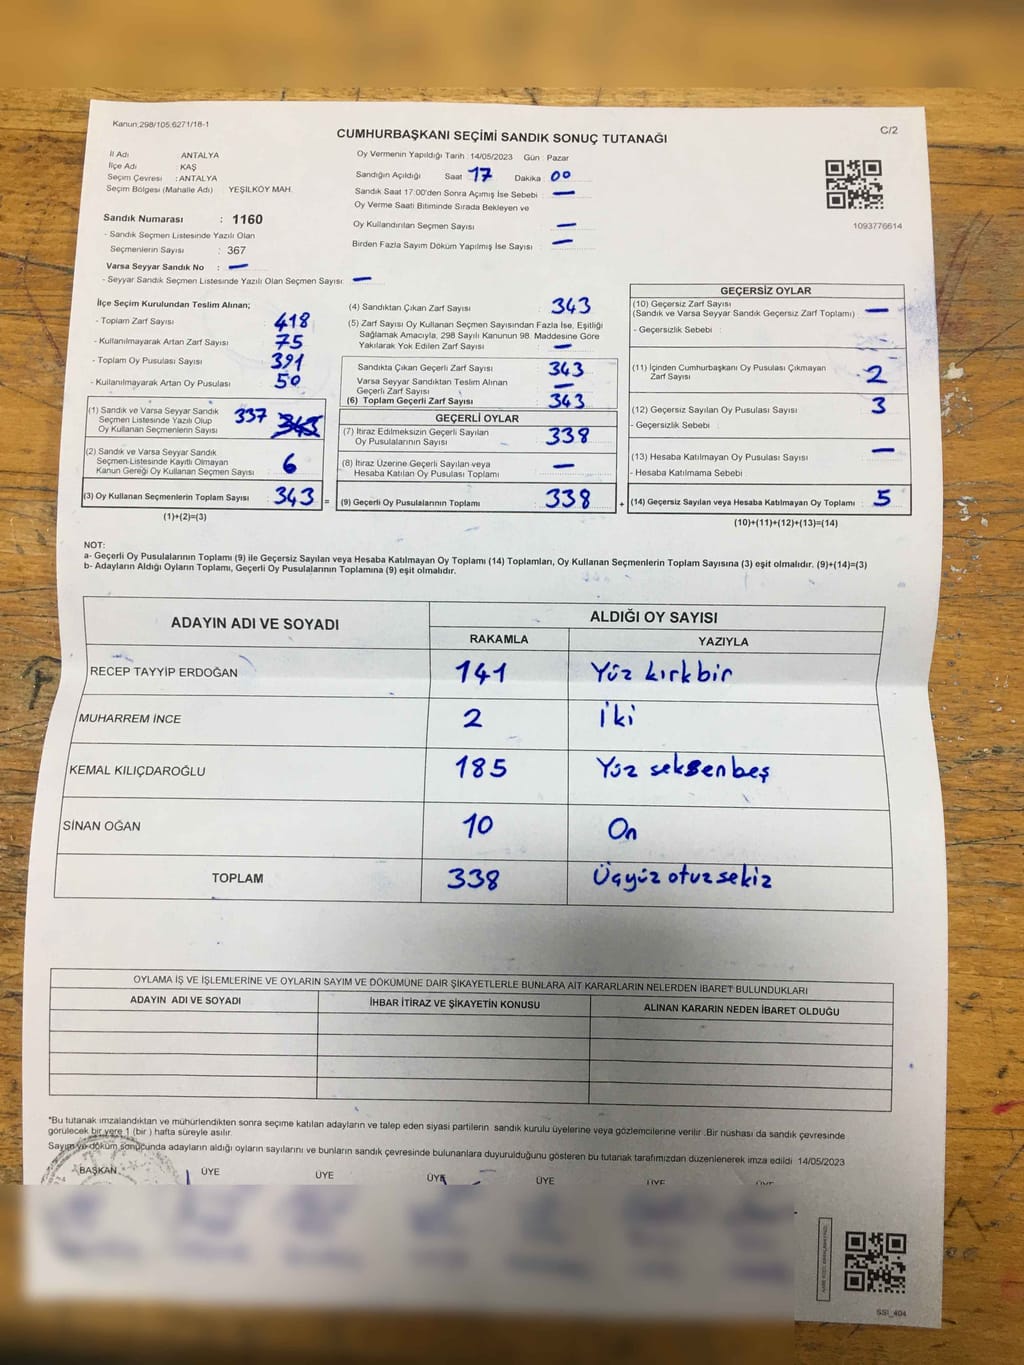 Kanun:298/105;6271/18-1
C/2
CUMHURBAŞKANI SEÇİMİ SANDIK SONUÇ TUTANAĞI
İl Adı : ANTALYA
İlçe Adı : KAŞ
Seçim Çevresi : ANTALYA
Seçim Bölgesi (Mahalle Adı) YEŞİLKÖY MAH.
Sandık Numarası : 1160
- Sandık Seçmen Listesinde Yazılı Olan
Seçmenlerin Sayısı : 367
Varsa Seyyar Sandık No : —
- Seyyar Sandık Seçmen Listesinde Yazılı Olan Seçmen Sayısı: —
Oy Vermenin Yapıldığı Tarih : 14/05/2023 Gün : Pazar
Sandığın Açıldığı Saat : 17 Dakika : 00
Sandık Saat 17:00'den Sonra Açımış İse Sebebi : —
Oy Verme Saati Bitiminde Sırada Bekleyen ve
Oy Kullandırılan Seçmen Sayısı : —
Birden Fazla Sayım Döküm Yapılmış İse Sayısı : —
1093776614
İlçe Seçim Kurulundan Teslim Alınan;
- Toplam Zarf Sayısı : 418
- Kullanılmayarak Artan Zarf Sayısı : 75
- Toplam Oy Pusulası Sayısı : 391
- Kullanılmayarak Artan Oy Pusulası : 50
(1) Sandık ve Varsa Seyyar Sandık
Seçmen Listesinde Yazılı Olup
Oy Kullanan Seçmenlerin Sayısı : 337 343
(2) Sandık ve Varsa Seyyar Sandık
Seçmen Listesinde Kayıtlı Olmayan
Kanun Gereği Oy Kullanan Seçmen Sayısı : 6
(3) Oy Kullanan Seçmenlerin Toplam Sayısı : 343 =
(1)+(2)=(3)
(4) Sandıktan Çıkan Zarf Sayısı : 343
(5) Zarf Sayısı Oy Kullanan Seçmen Sayısından Fazla İse, Eşitliği
Sağlamak Amacıyla, 298 Sayılı Kanunun 98. Maddesine Göre
Yakılarak Yok Edilen Zarf Sayısı : —
Sandıkta Çıkan Geçerli Zarf Sayısı : 343
Varsa Seyyar Sandıktan Teslim Alınan
Geçerli Zarf Sayısı : —
(6) Toplam Geçerli Zarf Sayısı : 343
GEÇERLİ OYLAR
(7) İtiraz Edilmeksizin Geçerli Sayılan
Oy Pusulalarının Sayısı : 338
(8) İtiraz Üzerine Geçerli Sayılan veya
Hesaba Katılan Oy Pusulası Toplamı : —
(9) Geçerli Oy Pusulalarının Toplamı : 338 +
GEÇERSİZ OYLAR
(10) Geçersiz Zarf Sayısı
(Sandık ve Varsa Seyyar Sandık Geçersiz Zarf Toplamı) : —
- Geçersizlik Sebebi :
(11) İçinden Cumhurbaşkanı Oy Pusulası Çıkmayan
Zarf Sayısı : 2
(12) Geçersiz Sayılan Oy Pusulası Sayısı : 3
- Geçersizlik Sebebi :
(13) Hesaba Katılmayan Oy Pusulası Sayısı : —
- Hesaba Katılmama Sebebi :
(14) Geçersiz Sayılan veya Hesaba Katılmayan Oy Toplamı : 5
(10)+(11)+(12)+(13)=(14)
NOT:
a- Geçerli Oy Pusulalarının Toplamı (9) ile Geçersiz Sayılan veya Hesaba Katılmayan Oy Toplamı (14) Toplamları, Oy Kullanan Seçmenlerin Toplam Sayısına (3) eşit olmalıdır. (9)+(14)=(3)
b- Adayların Aldığı Oyların Toplamı, Geçerli Oy Pusulalarının Toplamına (9) eşit olmalıdır.
ADAYIN ADI VE SOYADI ALDIĞI OY SAYISI
RAKAMLA YAZIYLA
RECEP TAYYİP ERDOĞAN 141 Yüz kırkbir
MUHARREM İNCE 2 İki
KEMAL KILIÇDAROĞLU 185 Yüz seksenbeş
SİNAN OĞAN 10 On
TOPLAM 338 Üçyüz otuzsekiz
OYLAMA İŞ VE İŞLEMLERİNE VE OYLARIN SAYIM VE DÖKÜMÜNE DAİR ŞİKAYETLERLE BUNLARA AİT KARARLARIN NELERDEN İBARET BULUNDUKLARI
ADAYIN ADI VE SOYADI İHBAR İTİRAZ VE ŞİKAYETİN KONUSU ALINAN KARARIN NEDEN İBARET OLDUĞU
*Bu tutanak imzalandıktan ve mühürlendikten sonra seçime katılan adayların ve talep eden siyasi partilerin sandık kurulu üyelerine veya gözlemcilerine verilir .Bir nüshası da sandık çevresinde
görülecek bir yere 1 (bir ) hafta süreyle asılır.
Sayım ve döküm sonucunda adayların aldığı oyların sayılarını ve bunların sandık çevresinde bulunanlara duyurulduğunu gösteren bu tutanak tarafımızdan düzenlenerek imza edildi 14/05/2023
BAŞKAN ÜYE ÜYE ÜYE ÜYE ÜYE ÜYE
SSI_404